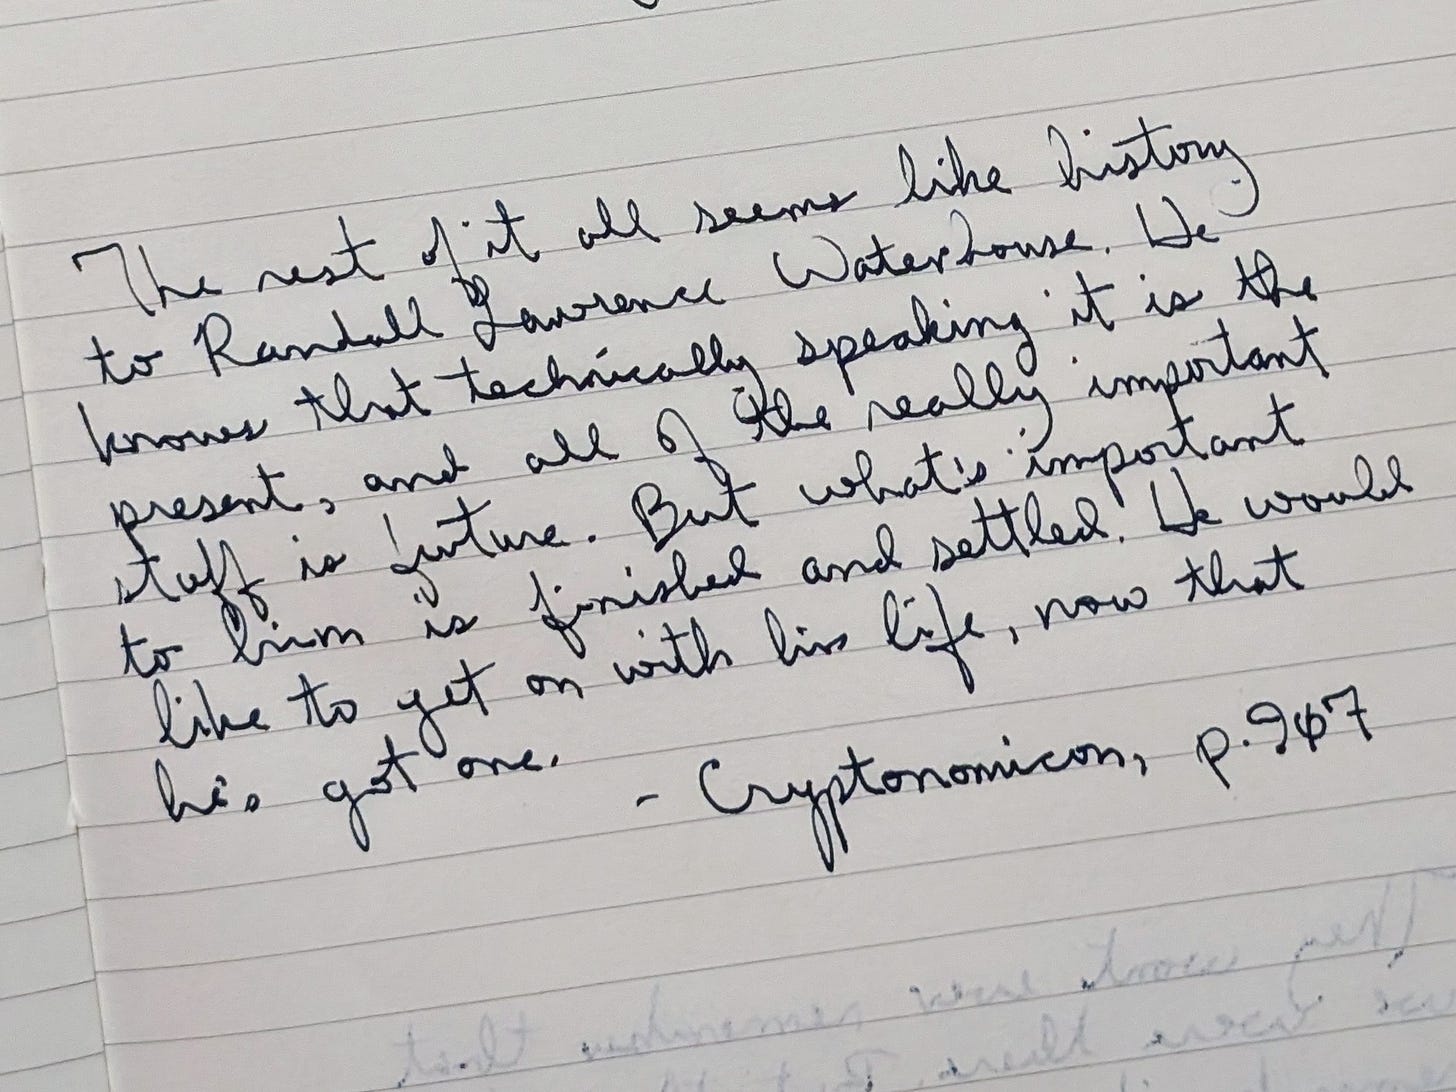 The rest of it all seems like history
to Randall Lawrence Waterhouse. He
knows that technically speaking it is the
present, and all of the really important
stuff is future. But what's important
to him is finished and settled. He would
like to get on with his life, now that
he's got one.
- Cryptonomicon, p.967
They won't even remember that